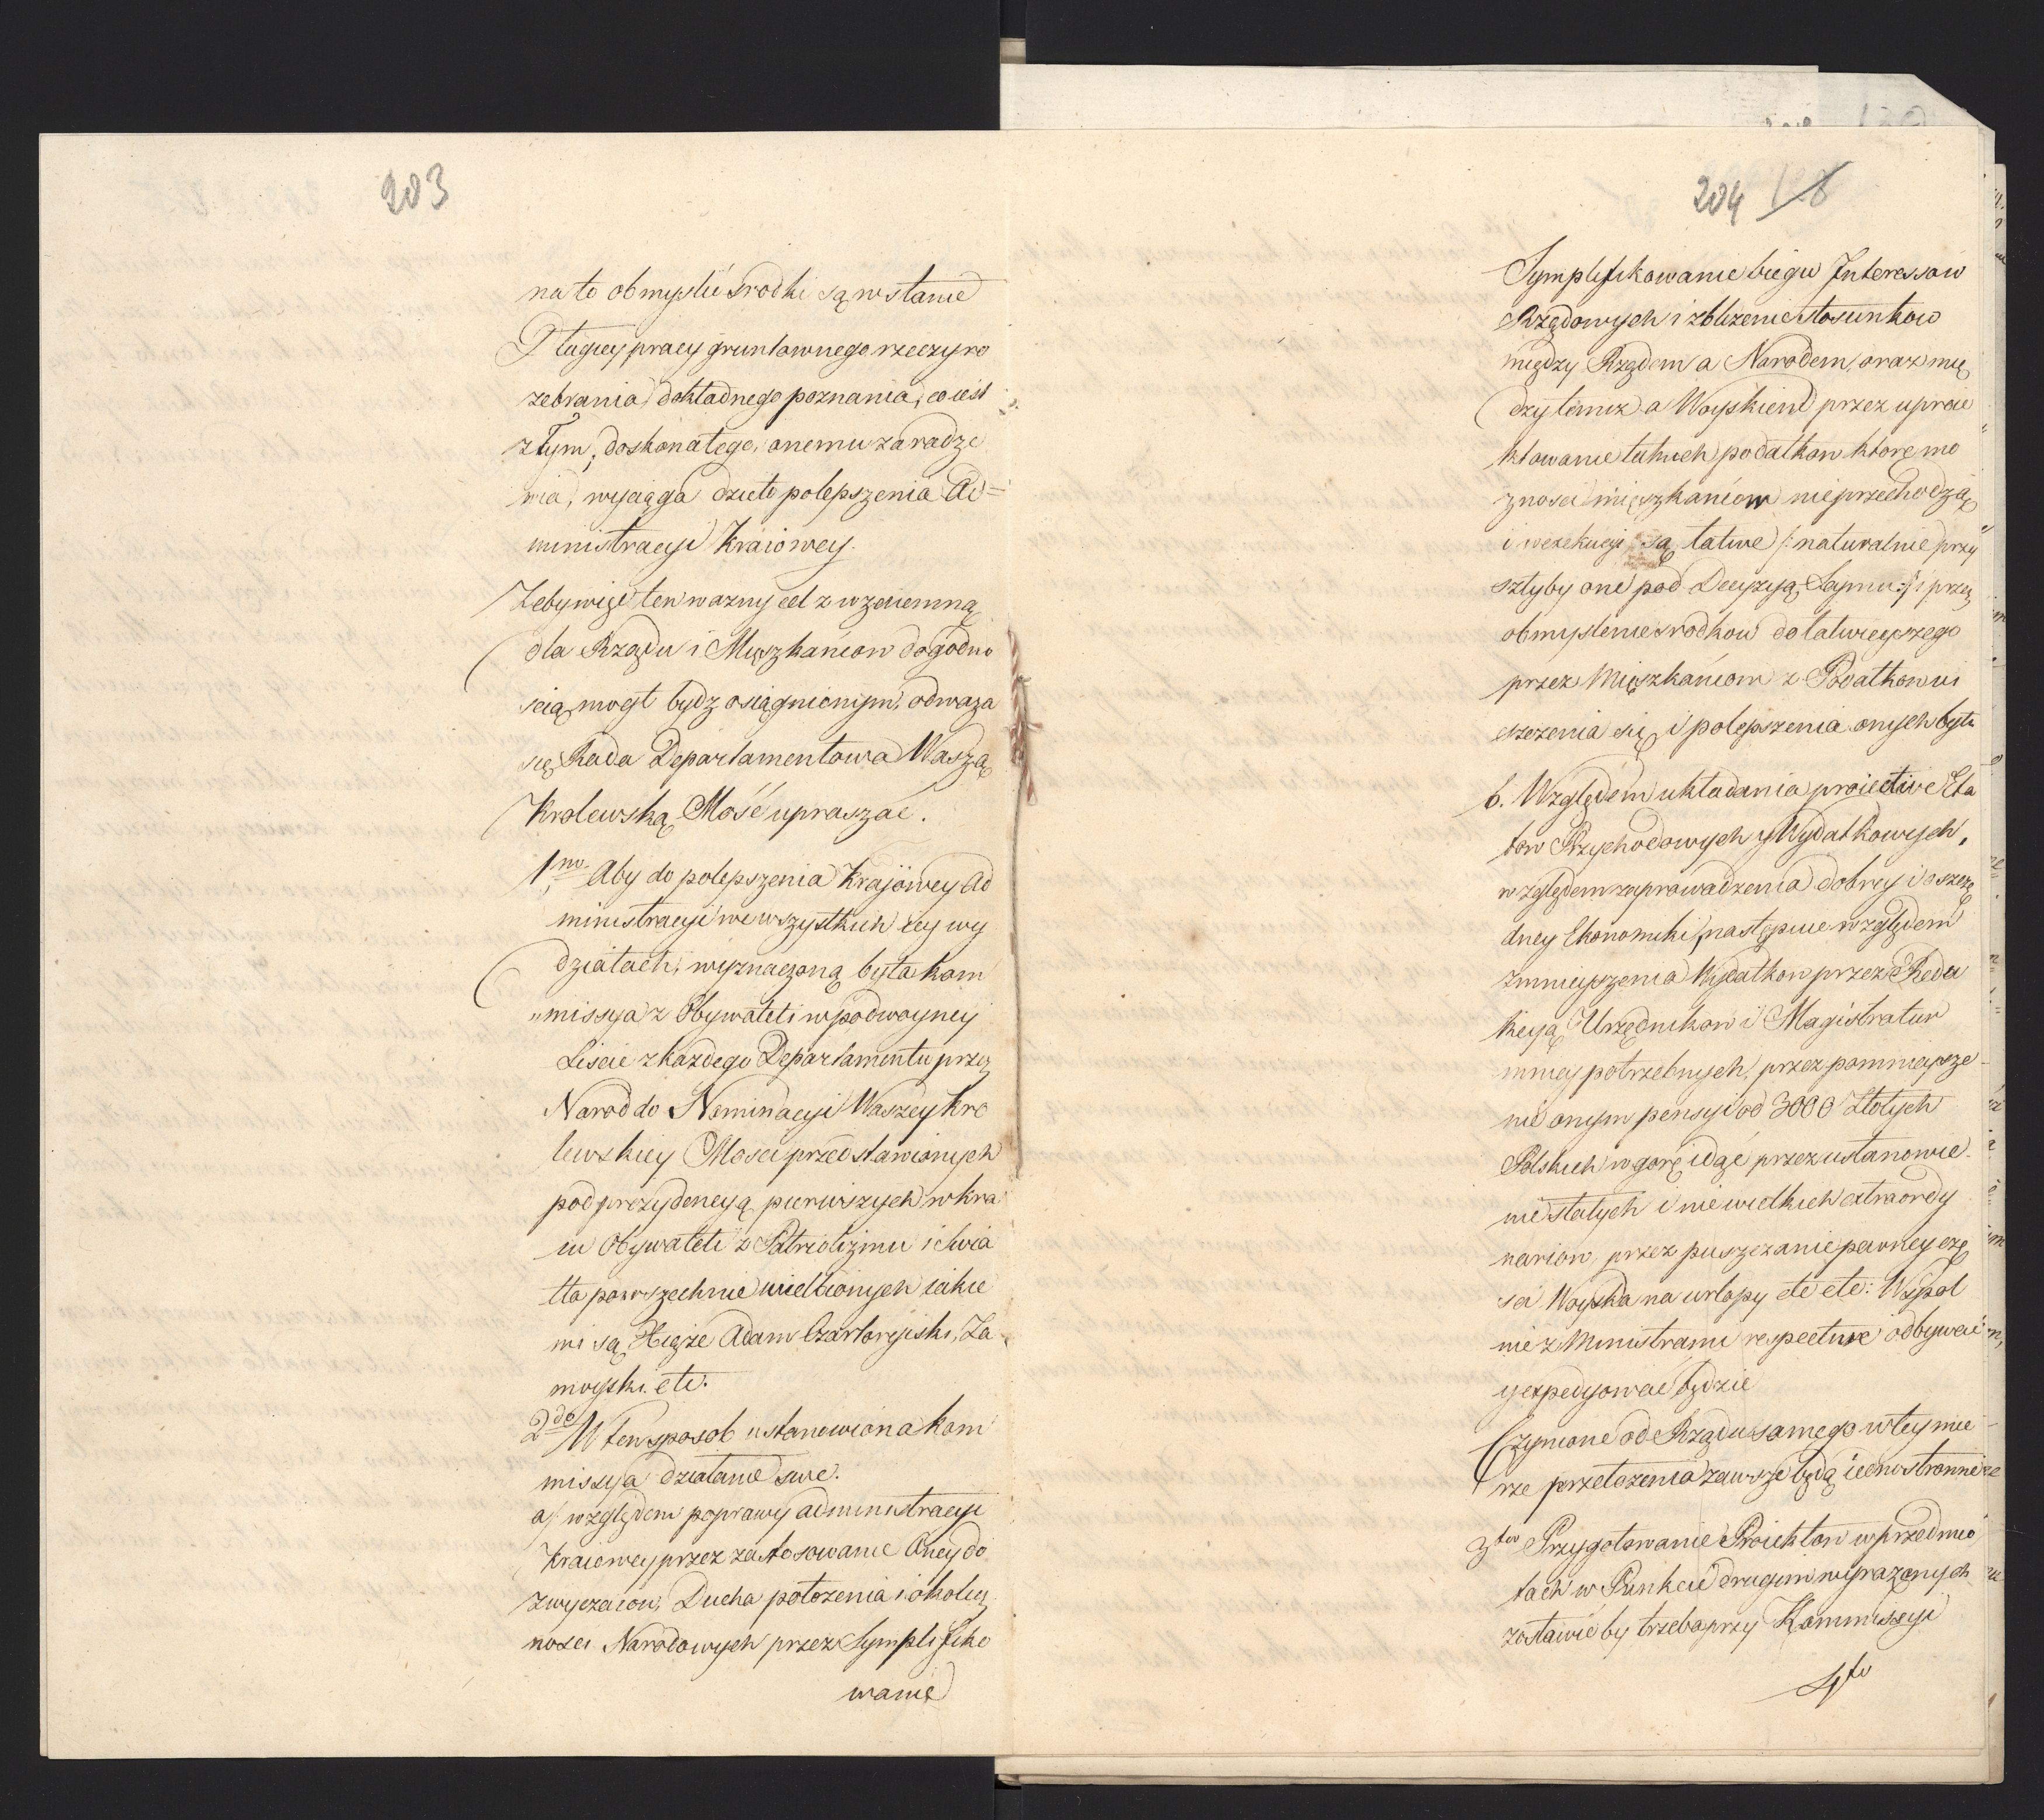 203
na to obmyslić srodki są w stanie
Długiey pracy gruntownego rzeczy ro
zebrania, dokładnego poznania, co iest
złym, doskonałego, onemu zaradze
nia, wyciąga dzieło polepszenia Ad=
ministracyi Kraiowey.
Zeby więc ten wazny cel z wzaiemną
dla Rządu i Mięszkańcow dogodno
scią mogł bydz osiągnionym, odwaza
się Rada Departamentowa Waszą
Krolewską Mość upraszać.
1mo Aby do polepszenia Krajowey Ad
ministracyi we wszystkich iey wy
działach, wyznaczoną była kom
"missya z Obywateli w podwoyney
Liście z każdego Departamentu przez
Narod do Nominacyi Waszey Kro
lewskiey Mosci przedstawionych
pod prezydencyą pierwszych w kra
iu Obywateli z Patriotizmu i Swia
tła powszechnie wielbionych iakie
mi są Xiąże Adam Czartoryiski, Za
moyski etc.
2do W ten sposob ustanowiona kom
missya działanie swe.
a/ względem poprawy administracyi
Kraiowey przez zastosowanie Oney do
zwyczaiow, Ducha położenia i okolicz
nosci Narodowych przez Symplifiko
wanie
204 18
Symplifikowanie biegu Interessow
Rządowych i zblizenie stosunkow
między Rządem a Narodem, oraz mię
dzy temiz a Woyskiem przez uproie
ktowanie takich podatkow ktore mo
znosci mięszkańcow nie przechodzą
i w exekucyi są łatwe /: naturalnie przy
szłyby one pod Decyzyą Seymu :/ i przez
obmyslenie srodkow do łatwieyszego
przez Mięszkańcow z Podatkow ui
szczenia się i polepszenia onych bytu
b. Względem układania proiective Eta
tow Przychodowych y Wydatkowych,
względem zaprowadzenia dobrey i oszczę
dney Ekonomiki, następnie względem
zmnieyszenia Wydatkow przez Redu
kcyą Urzędnikow i Magistratur
mniey potrzebnych, przez pomnieysze
nie onym pensyi od 3000 Złotych
Polskich w gorę idąć przez ustanowie
nie stałych i nie wielkich extraordy
narion, przez puszczanie pewney czę
sci Woyska na urlopy etc etc: Wspol
nie z Ministrami respective odbywać
y expedyować będzie
Czynione od Rządu samego w tey mie
rze przełozenia zawsze będą iednostronne
3tio Przygotowanie Proiektow w przedmio
tach w Punkcie drugim wyrazonych
zostawić by trzeba przy Kommissyi
4to